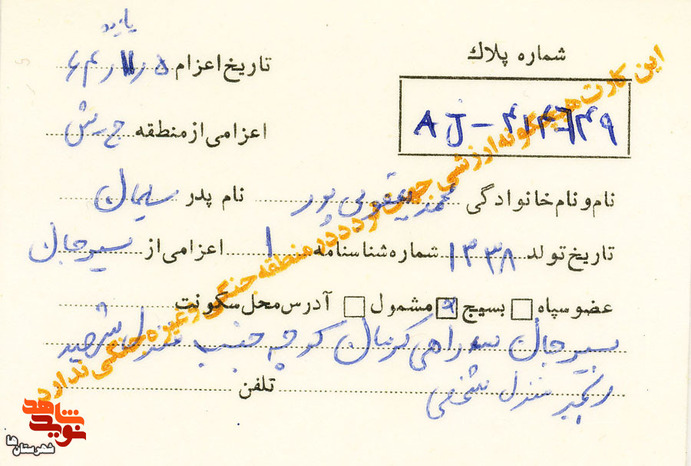 شماره پلاك
AJ-414649
تاریخ اعزام ۵ر۱۱ر۶۴
یازده
اعزامی از منطقه
نام و نام خانوادگی محمد یعقوبی پور نام پدر سلیمان
تاریخ تولد ۱۳۳۸ شماره شناسنامه ۱ اعزامی از سیرجان
عضو سپاه بسیج مشمول آدرس محل سکونت
سیرجان سه راهی کرمان کوچه جنب منزل شهید
رنجبر منزل شخصی
تلفن
این کارت هیچگونه ارزشی جهت تردد در منطقه جنگی و غیره جنگی ندارد
نوید شاهد
شهرستان ها